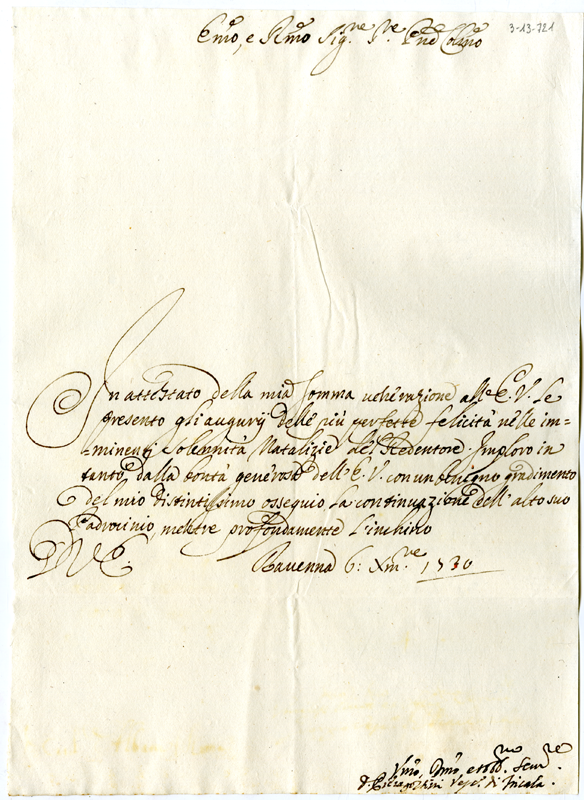 Emo, e Rmo Sig.re P.re Pne Colmo
3-13-721
In attestato della mia somma venerazione all' E. V. Le
presento gli augurij delle più perfette felicità nelle im=
=minenti solennità Natalizie del Redentore. Imploro in
tanto dalla bontà generosa dell' E. V. con un benigno gradimento
del mio distintissimo ossequio la continuazione dell' alto suo
Padrocinio, mentre profondamente l'inchino
D. V. E.
Ravenna 6: Xm.re 1730
Vmo, Dmo, et Obb.mo Serv.re
Vesc. di Tricala.